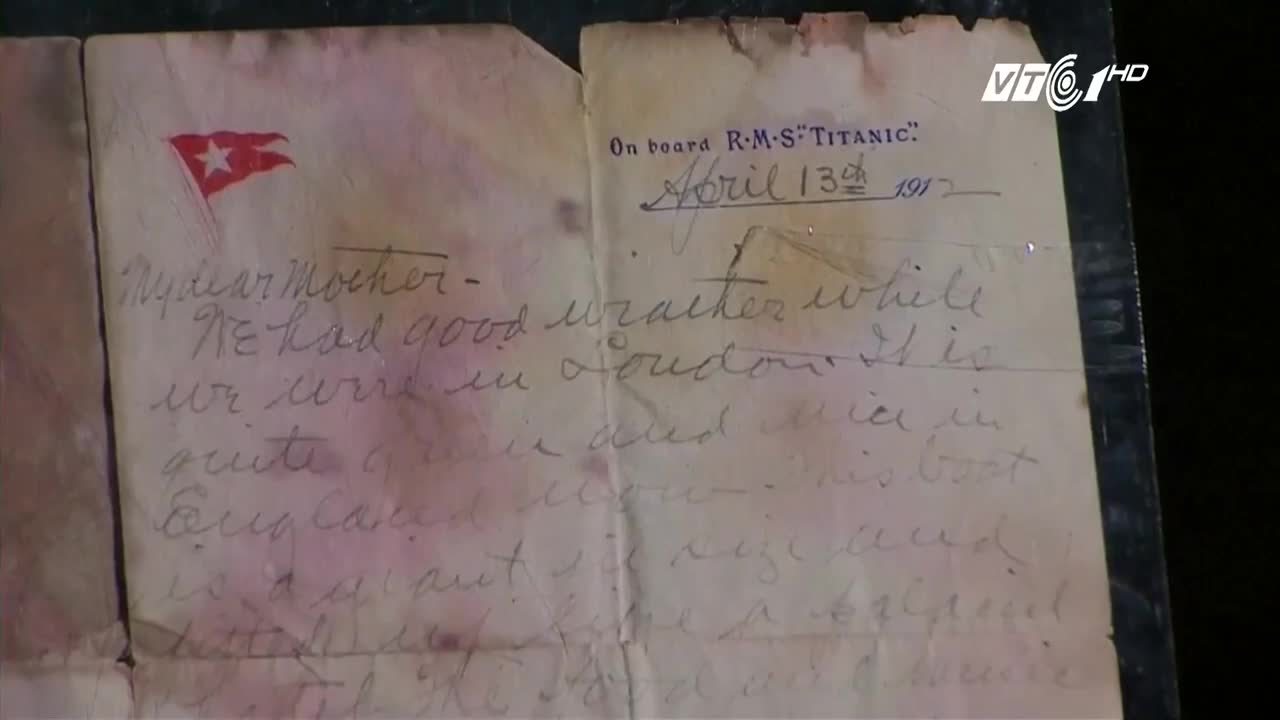 VTC1 HD
On board R·M·S· "TITANIC".
April 13th 1912
My dear Mother -
We had good weather while
we were in London. It is
quite green and nice in
England now. This boat
is a giant in size and
fitted up like a palacial
hotel. The food and music